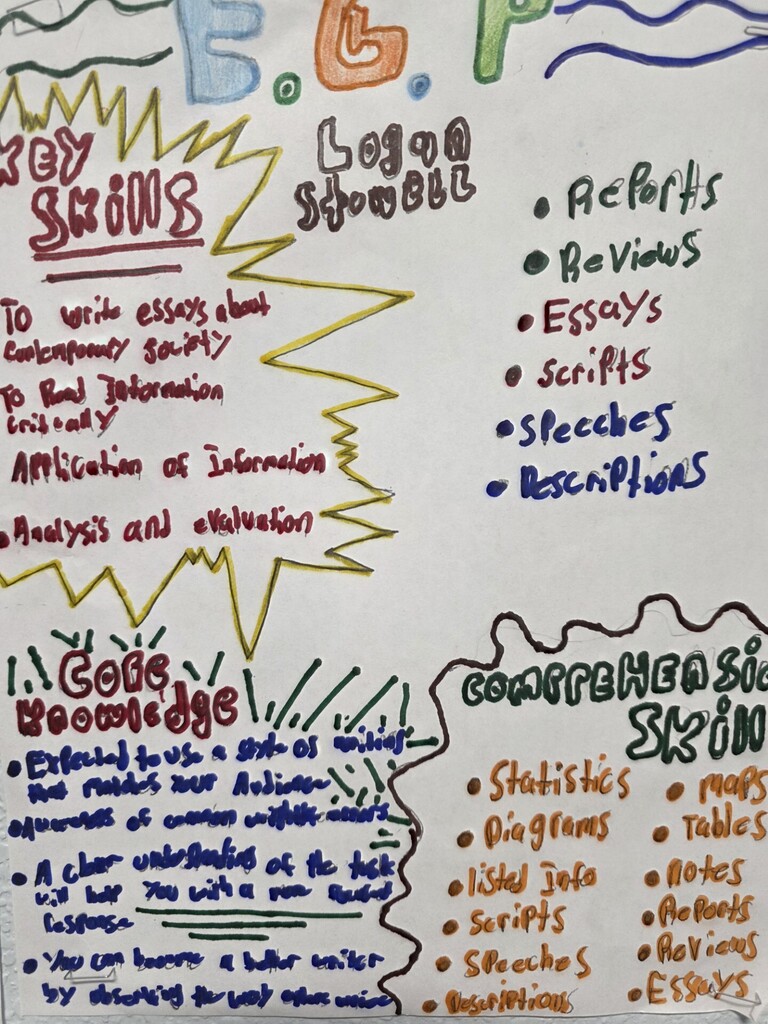 E.C.P
Logan
Stowell
KEY
SKills
To write essays about
contemporary society
To Read Information
critically
Application of Information
• Analysis and evaluation
• Reports
• Reviews
• Essays
• scripts
• speeches
• Descriptions
Core
Knowledge
• Expected to use a style of writing
that matches your Audience
• Awareness of common
• A clear understanding of the task
will help you with a more
Response
• You can become a better writer
by observing the way others
COMPREHENSIO
SKill
• Statistics
• Diagrams
• listed Info
• scripts
• Speeches
• Descriptions
• maps
• Tables
• Notes
• Reports
• Reviews
• Essays